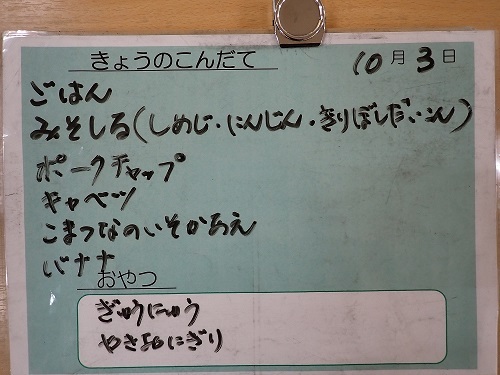 きょうのこんだて 10月3日
ごはん
みそしる(しめじ・にんじん・きりぼしだいこん)
ポークチャップ
キャベツ
こまつなのいそかあえ
バナナ
おやつ
ぎゅうにゅう
やきおにぎり